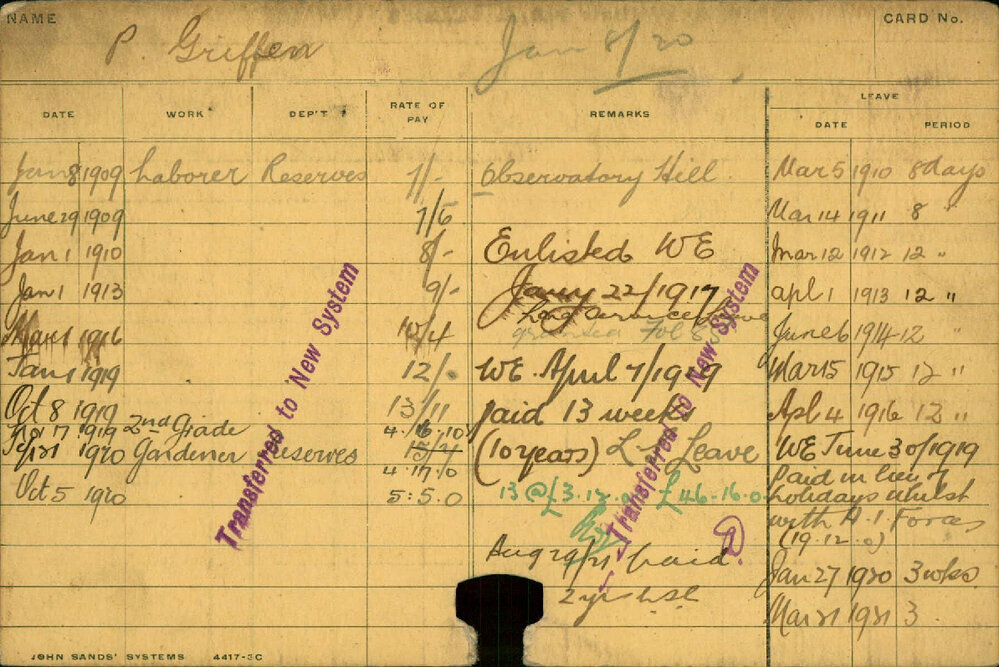 NAME
P. Griffen
Jan 8/20
CARD No.
DATE WORK DEP'T RATE OF PAY REMARKS LEAVE
DATE PERIOD
Jan 8 1909 Laborer Reserves 7/- Observatory Hill. Mar 5 1910 8 days
June 29 1909 7/6 Mar 14 1911 8 "
Jan 1 1910 8/- Enlisted WE Mar 12 1912 12 "
Jan 1 1913 9/- Jany 22/1917 Apl 1 1913 12 "
Long Service Leave
Mar 1 1916 10/4 granted Fol June 6 1914 12 "
Jan 1 1919 12/- WE. April 7/1919 Mar 15 1915 12 "
Oct 8 1919 13/11 paid 13 weeks Apl 4 1916 12 "
17 1919 2nd Grade 4.16.10
1920 Gardener Reserves (10 years) L.S. Leave WE June 30/1919
4.17.0 Paid in lieu of
Oct 5 1920 5:5.0 13 @ £3.12.0 £46.16.0 holidays whilst
with A.I. Forces
(19.12.0)
Aug 29/21 paid. Jan 27 1920 3 wks
2 yrs LSL Mar 21 1921 3
Transferred to New System
Transferred to New System
JOHN SANDS' SYSTEMS 4417-3C